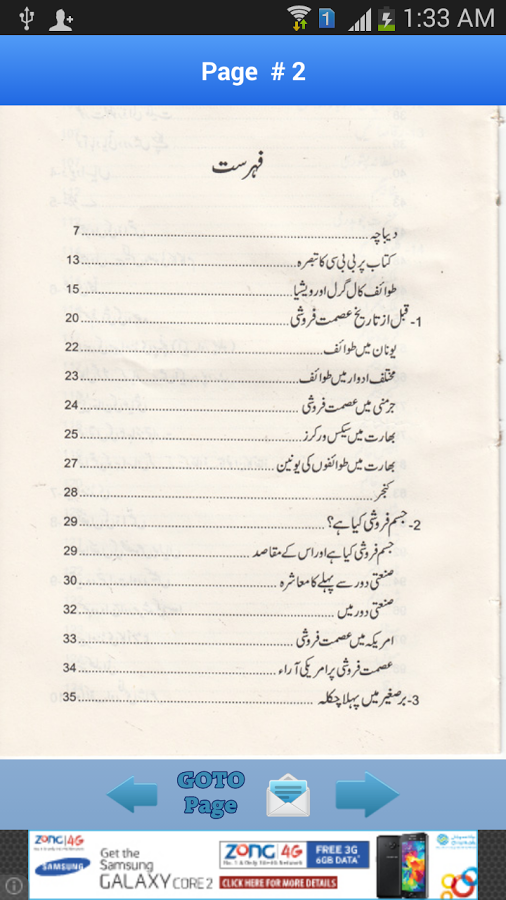 1
1:33 AM
Page # 2
فہرست
دیباچہ 7
کتاب پر بی بی سی کا تبصرہ 13
طوائف کال گرل اور ویشیا 15
1- قبل از تاریخ عصمت فروشی 20
یونان میں طوائف 22
مختلف ادوار میں طوائف 23
جرمنی میں عصمت فروشی 24
بھارت میں سیکس ورکرز 25
بھارت میں طوائفوں کی یونین 27
کنجر 28
2- جسم فروشی کیا ہے؟ 29
جسم فروشی کیا ہے اور اس کے مقاصد 29
صنعتی دور سے پہلے کا معاشرہ 30
صنعتی دور میں 32
امریکہ میں عصمت فروشی 33
عصمت فروشی پر امریکی آراء 34
3- برصغیر میں پہلا چکلہ 35
GOTO
Page
ZONG 4G
SAMSUNG
Get the
Samsung
GALAXY CORE 2
ZONG 4G
No. 1 & Only 3G+4G Network
FREE 3G
6GB DATA*
CLICK HERE FOR MORE DETAILS